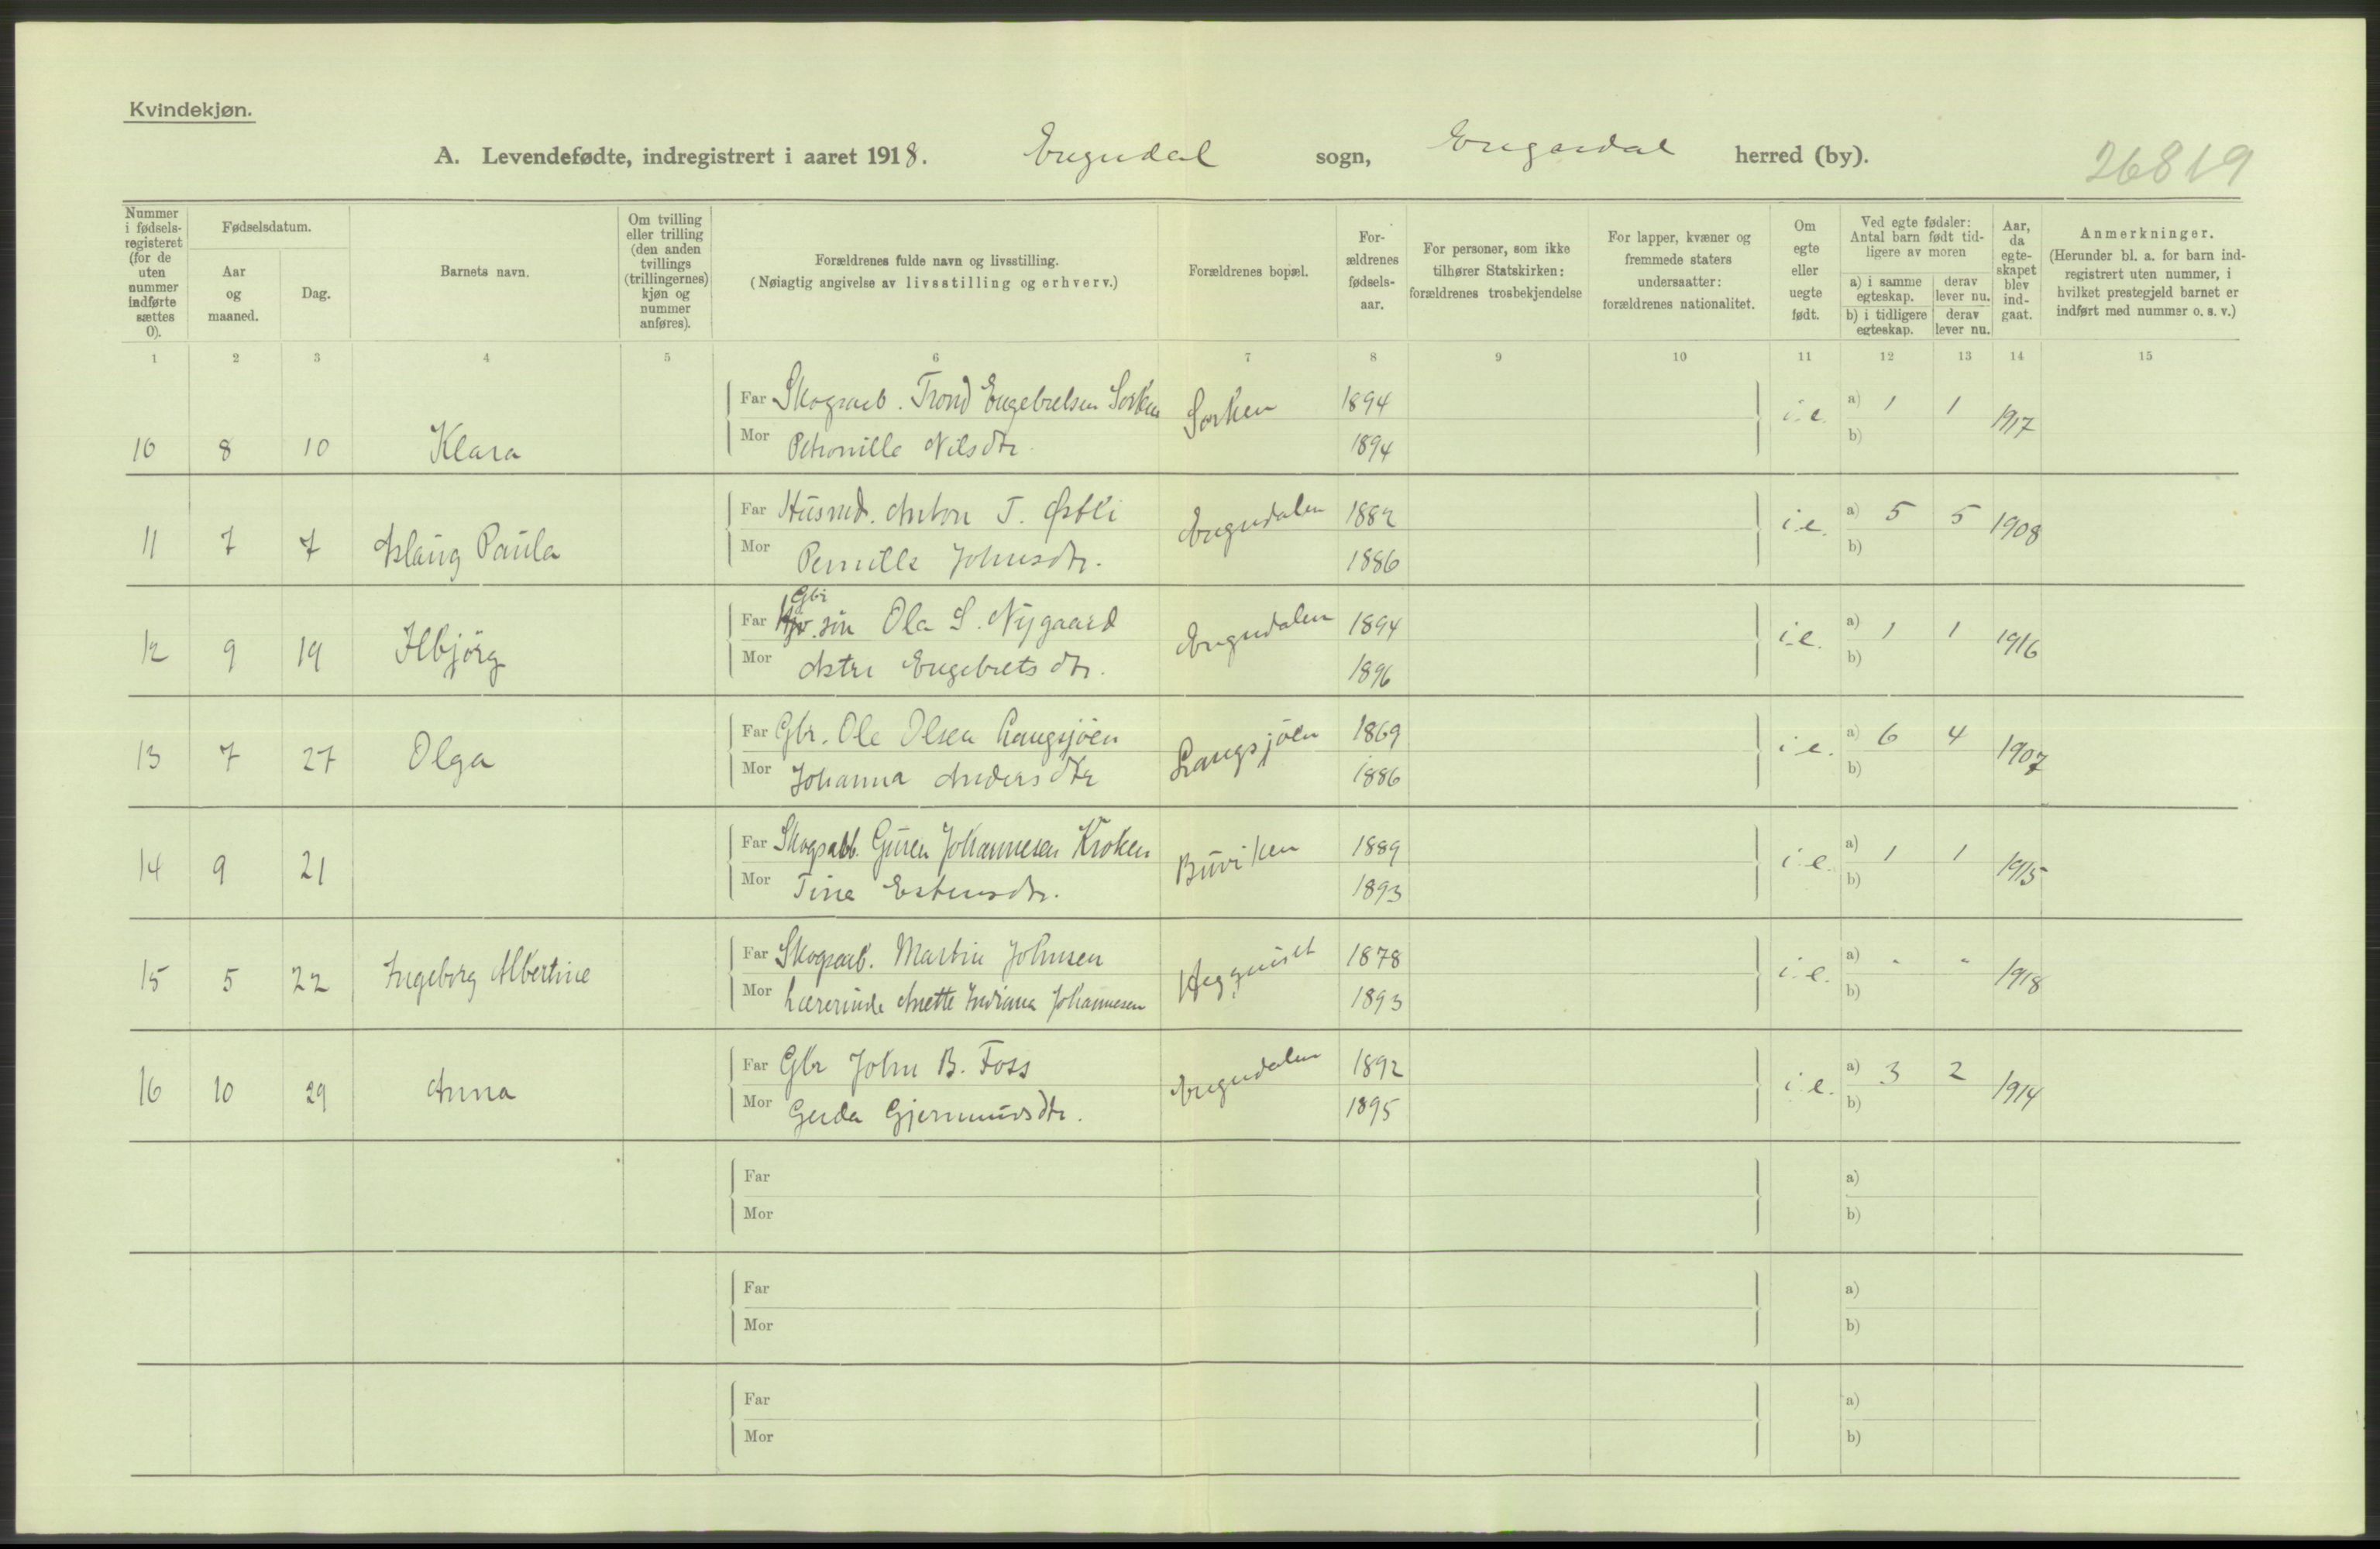 Kvindekjøn.
A. Levendefødte, indregistrert i aaret 1918. Engerdal sogn, Engerdal herred (by). 26819
Nummer i fødsels-registeret (for de uten nummer indførte sættes 0).
Fødselsdatum.
Aar og maaned.
Dag.
Barnets navn.
Om tvilling eller trilling (den anden tvillings (trillingernes) kjøn og nummer anføres).
Forældrenes fulde navn og livsstilling.
(Nøiagtig angivelse av livsstilling og erhverv.)
Forældrenes bopæl.
For-ældrenes fødsels-aar.
For personer, som ikke tilhører Statskirken: forældrenes trosbekjendelse
For lapper, kvæner og fremmede staters undersaatter: forældrenes nationalitet.
Om egte eller uegte født.
Ved egte fødsler: Antal barn født tid-ligere av moren
a) i samme egteskap. derav lever nu.
b) i tidligere egteskap. derav lever nu.
Aar, da egte-skapet blev ind-gaat.
Anmerkninger.
(Herunder bl. a. for barn ind-registrert uten nummer, i hvilket prestegjeld barnet er indført med nummer o. s. v.)
1 2 3 4 5 6 7 8 9 10 11 12 13 14 15
Far Skogsarb. Trond Engebretsen Sorken Sorken 1894 i.e. a) 1 1 1917
10 8 10 Klara Mor Petronille Nilsdtr. 1894 b)
Far Husmd. Anton T. Østli Engerdalen 1882 i.e. a) 5 5 1908
11 7 7 Aslaug Paula Mor Pernille Johnsdtr. 1886 b)
Far Gbr. søn Ola S. Nygaard Engerdalen 1894 i.e. a) 1 1 1916
12 9 19 Ilbjörg Mor Astri Engebretsdtr. 1896 b)
Far Gbr. Ole Olsen Langsjöen Langsjöen 1869 i.e. a) 6 4 1907
13 7 27 Olga Mor Johanna Andersdtr 1886 b)
Far Skogsarb. Johannesen Kroken Buviken 1889 i.e. a) 1 1 1915
14 9 21 Mor Tine Estensdtr. 1893 b)
Far Skogsarb. Martin Johnsen 1878 i.e. a) " " 1918
15 5 22 Ingeborg Albertine Mor Lærerinde Anette Indiana Johannesen 1893 b)
Far Gbr John B. Foss Engerdalen 1892 i.e. a) 3 2 1914
16 10 29 Anna Mor Gerda Gjermundsdtr. 1895 b)
Far a)
Mor b)
Far a)
Mor b)
Far a)
Mor b)